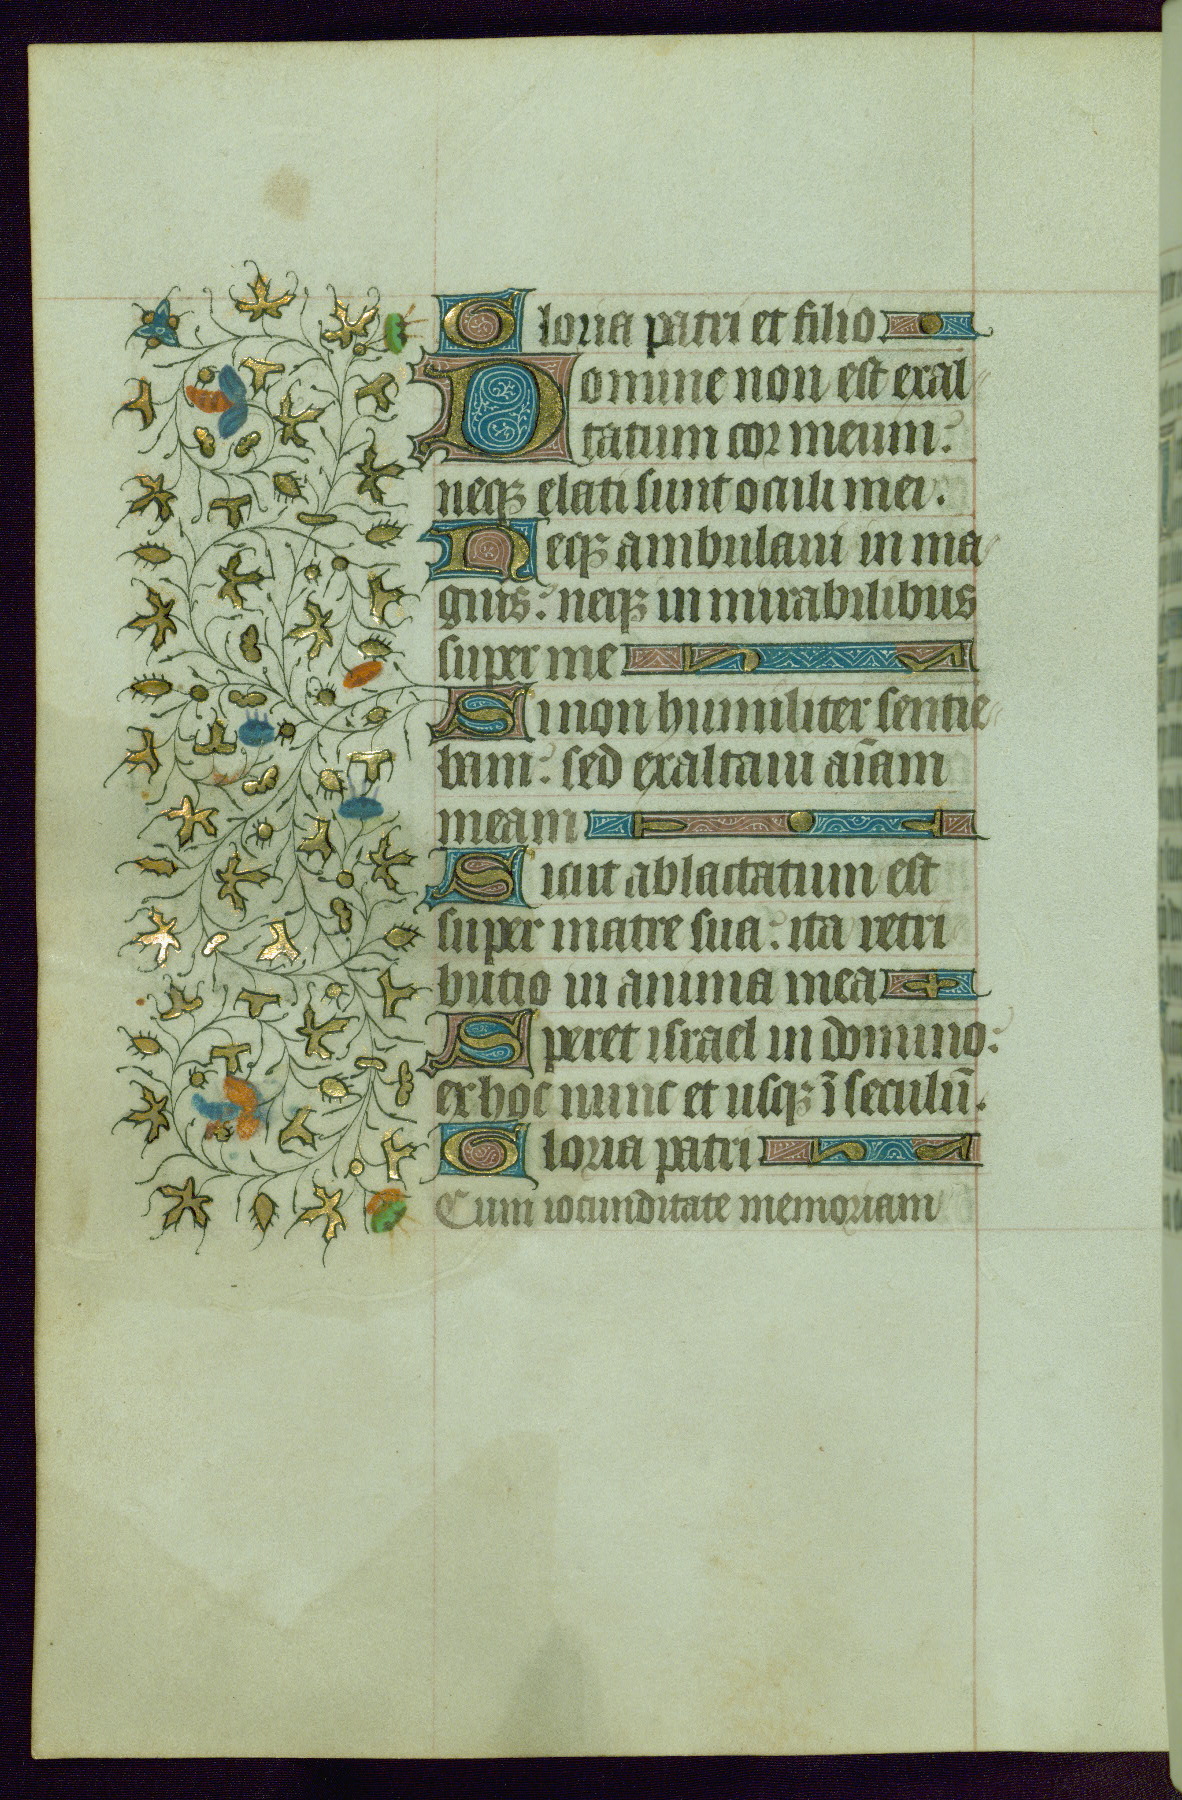 Gloria patri et filio
Domine non est exal
tatum cor meum:
neqꝫ elati sunt oculi mei.
Neqꝫ ambulaui in ma
gnis: neqꝫ in mirabilibus
super me
Si non humiliter sentie
bam: sed exaltaui aīam
meam
Sicut ablactatum est
super matre sua: ita retri
butio in anima mea
Speret israel in domino:
ex hoc nunc et usqꝫ ī seculū.
Gloria patri
Cum iocunditate memoriam